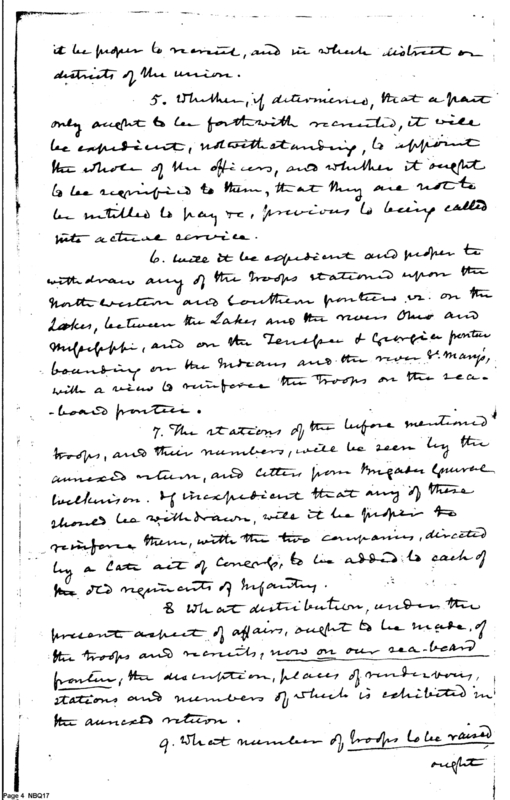 it be proper to recruit, and in which district or
districts of the union.
5. Whether, if determined, that a part
only ought to be forthwith recruited, it will
be expedient, notwithstanding, to appoint
the whole of the officers, and whether it ought
to be signified to them, that they are not to
be entitled to pay &c, previous to being called
into actual service.
6. Will it be expedient and proper to
withdraw any of the troops stationed upon the
North Western and Southern frontiers vz. on the
Lakes, between the Lakes and the rivers Ohio and
Mississippi, and on the Tenessee & Georgia frontier
bounding on the Indians and the river St. Marys,
with a view to reinforce the troops on the sea-
-board frontier.
7. The stations of the before mentioned
troops, and their numbers, will be seen by the
annexed return, and letters from Brigadier General
Wilkinson. If inexpedient that any of these
should be withdrawn, will it be proper to
reinforce them, with the two companies, directed
by a late act of Congress, to be added to each of
the old regiments of Infantry.
8 What distribution, under the
present aspect of affairs, ought to be made, of
the troops and recruits, now on our sea-board
frontier, the description, places of rendezvous,
stations and numbers of which is exhibited in
the annexed return.
9. What number of troops to be raised
ought
Page 4 NBQ17